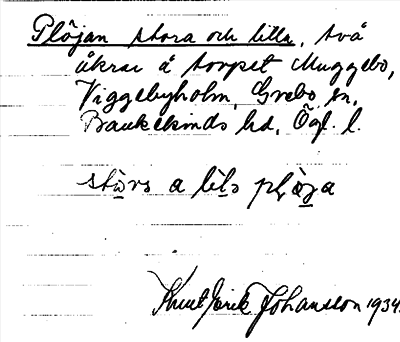 Plöjan stora och lilla, två
åkrar å torpet Muggebo,
Viggebyholm, Grebo sn,
Bankekinds hd, Ögl. l.
stòra a lìla plö̀ja
Knut Erik Johansson 1934.